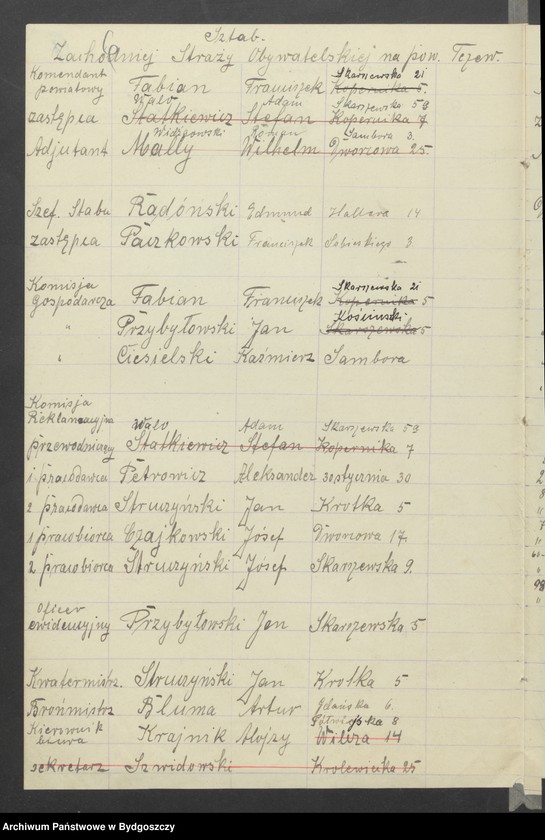 Sztab.
Zachodniej Straży Obywatelskiej na pow. Tczew.
Skarszewska 21
Komendant powiatowy Fabian Franciszek Kopernika 5.
Walo Adam Skarszewska 53
zastępca Statkiewicz Stefan Kopernika 7
Roman Sambora 3.
Adjutant Mally Wilhelm Dworcowa 25.
Szef. Stabu Radóński Edmund Hallera 14
zastępca Paczkowski Franciszek Sobieskiego 8
Skarszewska 21
Komisja gospodarcza Fabian Franciszek Kopernika 5
Kościuszki
" Przybyłowski Jan Skarszewska 5
" Ciesielski Kaźmierz Sambora
Komisja
Reklamacyjna Walo Adam Skarszewska 53
przewodniczący Statkiewicz Stefan Kopernika 7
1 pracodawca Petrowicz Aleksander 30 stycznia 30
2 pracodawca Struczyński Jan Krotka 5
1 pracobiorca Czajkowski Józef Dworcowa 17.
2 pracobiorca Struczyński Józef Skarszewska 9.
oficer
ewidencyjny Przybyłowski Jan Skarszewska 5
Kwatermistrz. Struczyński Jan Krotka 5
Brońmistrz Bluma Artur Gdańska 6.
Kierownik biura Krajnik Alojzy Wilcza 14
sekretarz Szwidowski Krolewiecka 25
Archiwum Państwowe w Bydgoszczy